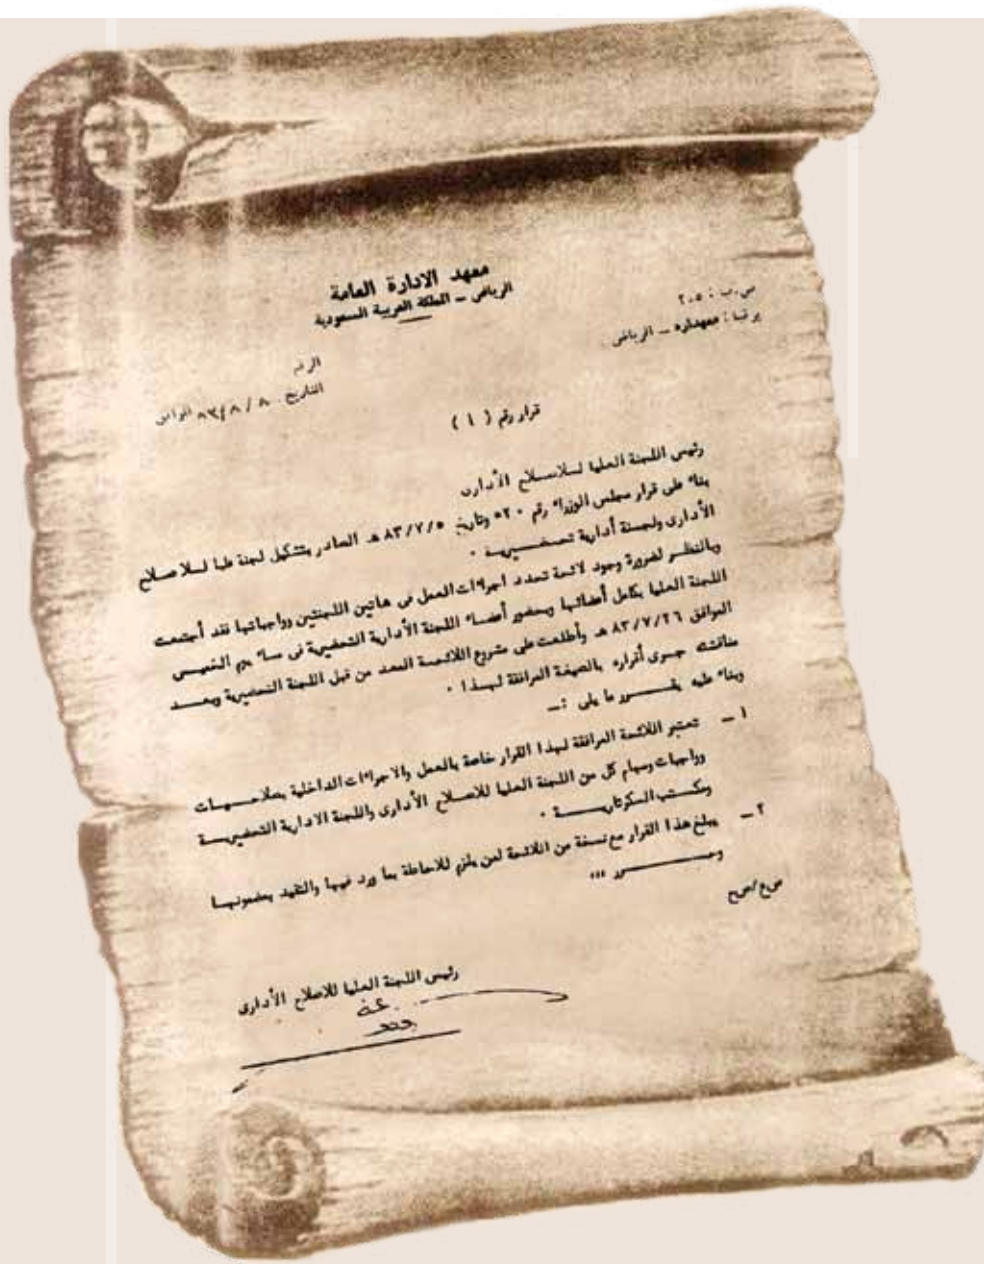 معهد الادارة العامة
الرياض – المملكة العربية السعودية
ص.ب : ٢٠٥
برقيا : معهداره – الرياض
الرقم
التاريخ ٨ / ٨ / ٨٣ الموافق
قرار رقم ( ١ )
رئيس اللجنة العليا للاصلاح الأدارى
بناء على قرار مجلس الوزراء رقم ٥٢٠ وتاريخ ٨٣/٧/٥ هـ الصادر بتشكيل لجنة عليا للاصلاح
الأدارى ولجنة أدارية تحضيرية ٠
وبالنظر لضرورة وجود لائحة تحدد اجراءات العمل فى هاتين اللجنتين وواجباتها فقد أجتمعت
اللجنة العليا بكامل أعضائها وبحضور أعضاء اللجنة الأدارية التحضيرية فى مساء يوم الخميس
الموافق ٨٣/٧/٢٦ هـ وأطلعت على مشروع اللائحة المعد من قبل اللجنة التحضيرية وبعد
مناقشته جرى أقراره بالصيغة المرافقة لهذا ٠
وبناء عليه يقرر ما يلى :ــ
١ – تعتبر اللائحة المرافقة لهذا القرار خاصة بالعمل والاجراءات الداخلية بصلاحيات
وواجبات ومهام كل من اللجنة العليا للاصلاح الأدارى واللجنة الادارية التحضيرية
ومكتب السكرتارية ٠
٢ – يبلغ هذا القرار مع نسخة من اللائحة لمن يلزم للاحاطة بما ورد فيها والتقيد بمضمونها
وحرر ٠٠٠
ص ع/ص ح
رئيس اللجنة العليا للاصلاح الأدارى